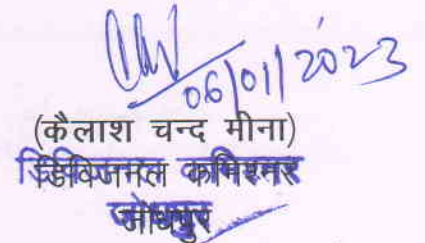 06/01/2023
(कैलाश चन्द मीना)
डिविजनल कमिश्नर
जोधपुर